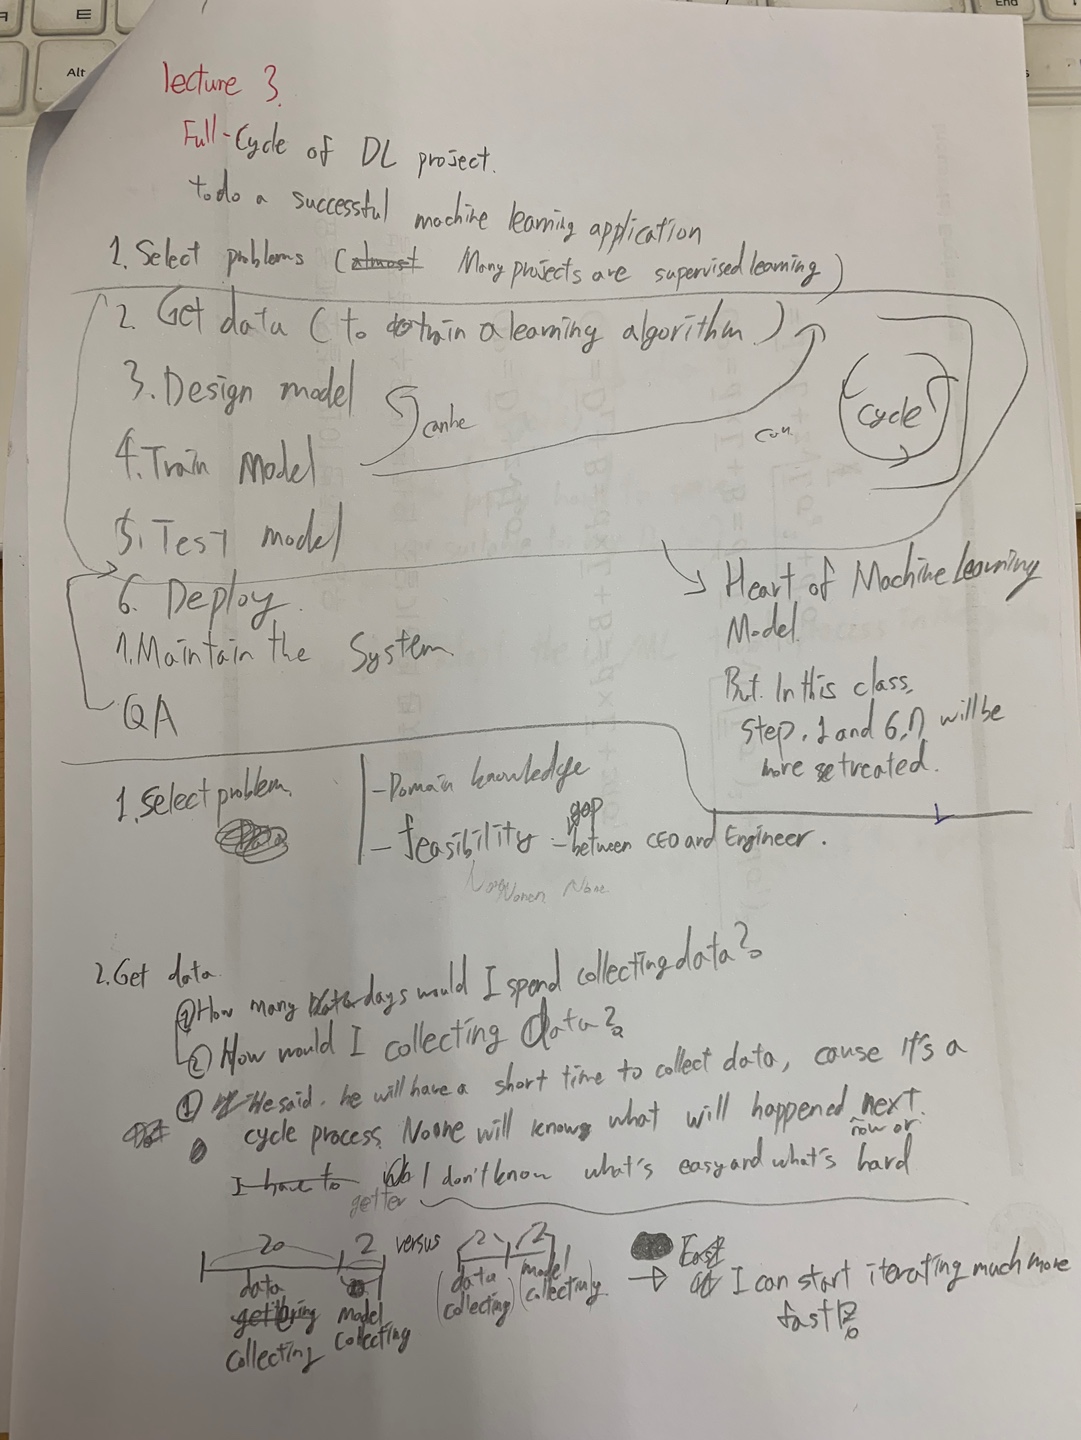 ㅌ
Alt
End
lecture 3.
Full-Cycle of DL project.
to do a successful machine learning application
1. Select problems (almost Many projects are supervised learning)
2. Get data (to train a learning algorithm)
3. Design model
can be
can
cycle
4. Train Model
5. Test model
6. Deploy.
7. Maintain the System
QA
Heart of Machine Learning
Model.
But. In this class,
step. 1 and 6, 7 will be
more treated.
1. Select problem.
- Domain knowledge
- feasibility - gap between CEO and Engineer.
None None
2. Get data
① How many days would I spend collecting data?
② How would I collecting data?
① He said. he will have a short time to collect data, cause it's a
cycle process. No one will know what will happened next.
now or
I have to I don't know what's easy and what's hard
getter
20 2 versus 2 2
data collecting
model collecting
(data collecting) (model collecting)
→ I can start iterating much more
fast